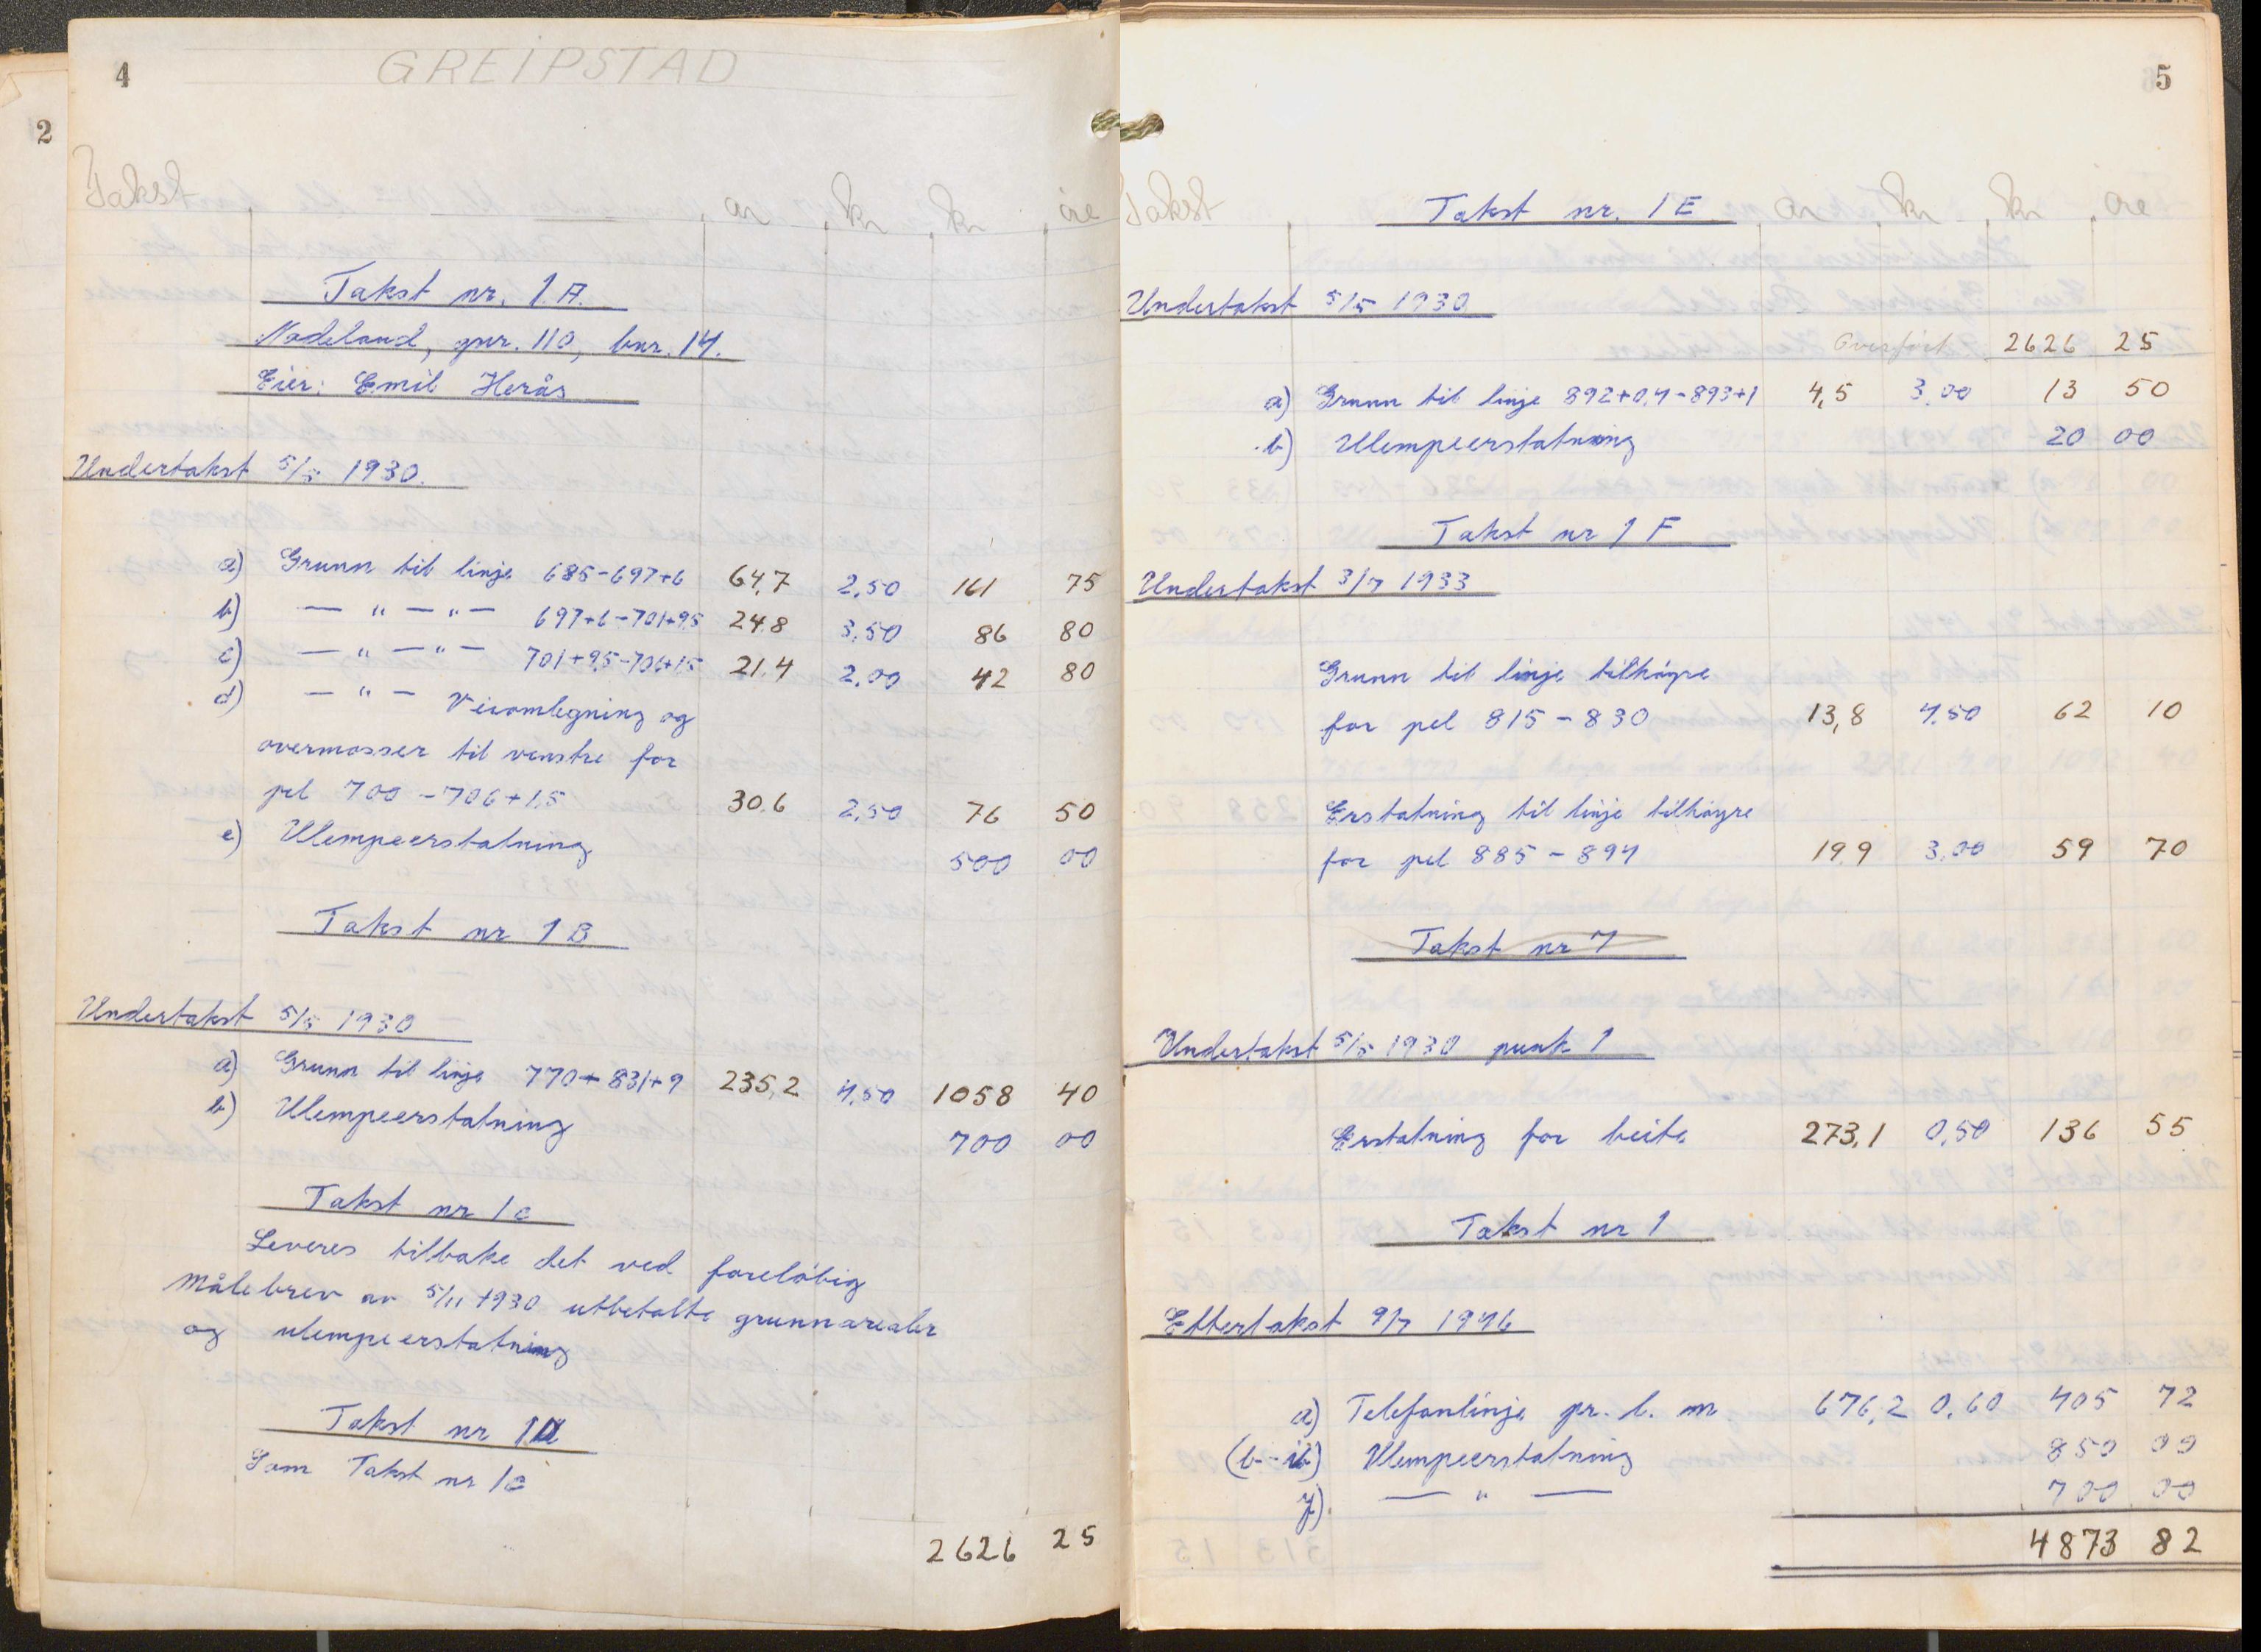 4
GREIPSTAD
2
Takst ar kr kr øre
Takst nr. 1 A.
Nodeland, gnr. 110, bnr. 14.
Eier: Emil Herås
Undertakst 5/5 1930.
a) Grunn til linje 685-697+6 64,7 2,50 161 75
b) — " — " — 697+6-701+9,5 24,8 3,50 86 80
c) — " — " — 701+9,5-706+1,5 21,4 2,00 42 80
d) — " — Veiomlegning og
overmasser til venstre for
pel 700-706+1,5 30,6 2,50 76 50
e) Ulempeerstatning 500 00
Takst nr 1 B
Undertakst 5/5 1930
a) Grunn til linje 770+831+9 235,2 4,50 1058 40
b) Ulempeerstatning 700 00
Takst nr 1 c
Leveres tilbake det ved foreløbig
målebrev av 5/11 1930 utbetalte grunnarealer
og ulempeerstatning
Takst nr 1d
Som Takst nr 1c
2626 25
5
Takst Takst nr. 1 E ar kr kr øre
Undertakst 5/5 1930
Overført 2626 25
a) Grunn til linje 892+0,4-893+1 4,5 3,00 13 50
b) Ulempeerstatning 20 00
Takst nr 1 F
Undertakst 3/7 1933
Grunn til linje tilhøyre
for pel 815-830 13,8 4,50 62 10
Erstatning til linje tilhøyre
for pel 885-894 19,9 3,00 59 70
Takst nr 7
Undertakst 5/5 1930 punk 1
Erstatning for beite 273,1 0,50 136 55
Takst nr 1
Ettertakst 9/7 1946
a) Telefonlinje pr. l. m 676,2 0,60 405 72
Ulempeerstatning 850 00
y) — " — 700 00
4873 82